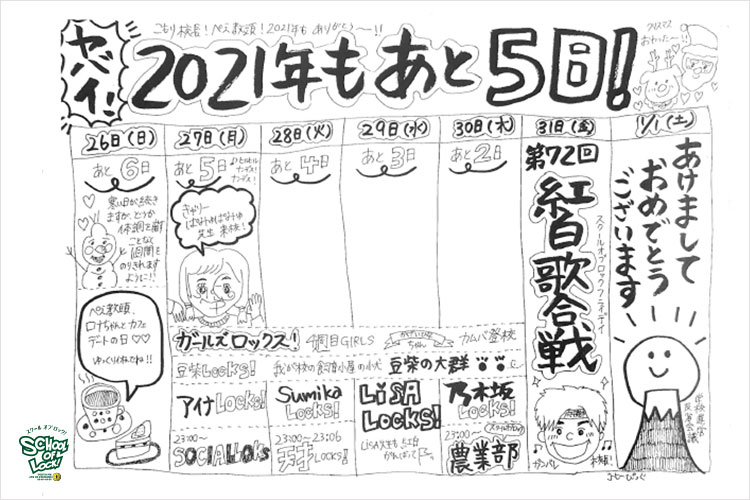 こもり校長！ぺえ教頭！2021年も ありがとう〜！！
ヤバイ！
2021年もあと5日！
クリスマス
おわったー！！
26日(日)
27日(月)
28日(火)
29日(水)
30日(木)
31日(金)
1/1(土)
あと6日
あと5日
あと4日
あと3日
あと2日
寒い日が続き
ますが、どうか
体調を崩す
ことなく
1週間を
のりきれます
ように！！
きゃりー
ぱみゅぱみゅ
先生 来校！
第72回
紅白歌合戦
スクールオブロックフライデイ
あけまして
おめでとう
ございます
ぺえ教頭、
ロナちゃんとカフェ
デートの日♡♡
ゆっくりしてね！！
ガールズロックス！
4週目GIRLS
カムバ登校
豆柴LOCKS!
我が校の飼育小屋の小犬
豆柴の大群
アイナLOCKS!
Sumika LOCKS!
LiSA LOCKS!
乃木坂LOCKS!
23:00〜
SOCIALLOCKS
23:00〜23:06
天才LOCKS!
LiSA先生も紅白
がんばって
23:00〜
農業部
ガンバレ
校長！
スクール オブ ロック！
SCHOOL OF LOCK!